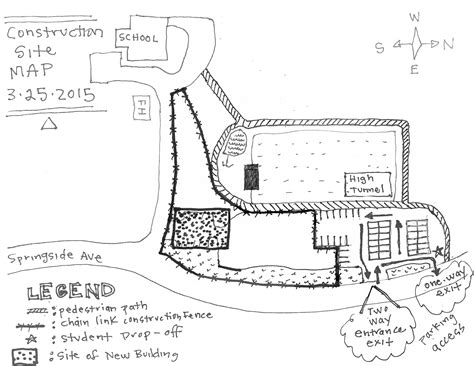 Construction
Site
MAP
3·25·2015
SCHOOL
W
S
N
E
High
Tunnel
Springside Ave
LEGEND
: pedestrian path
: chain link construction fence
: student Drop-off
: Site of New Building
Two
way
entrance
exit
one-way
exit
Parking
access